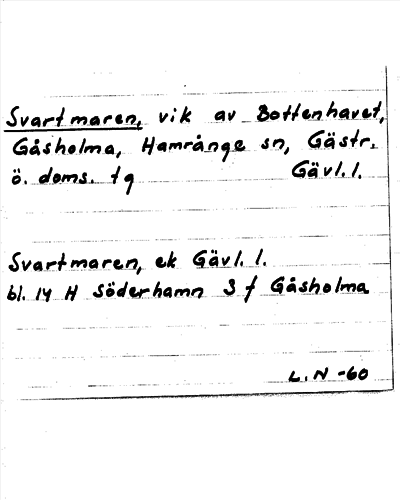 Svartmaren, vik av Bottenhavet,
Gåsholma, Hamrånge sn, Gästr.
ö. doms. tg Gävl. l.
Svartmaren, ek Gävl. l.
bl. 14 H Söderhamn S f Gåsholma
L. N -60